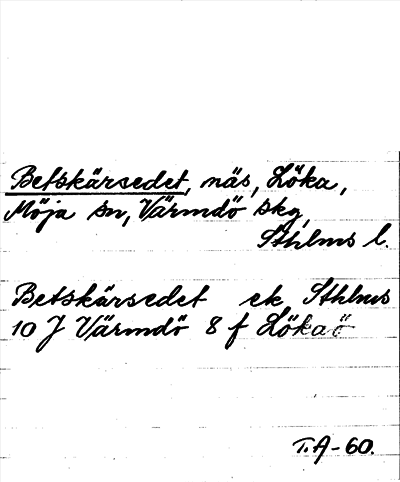 Betskärsedet, näs, Löka,
Möja sn, Värmdö skg,
Sthlms l.
Betskärsedet ek Sthlms
10 J Värmdö 8 f Lökaö
T.A-60.